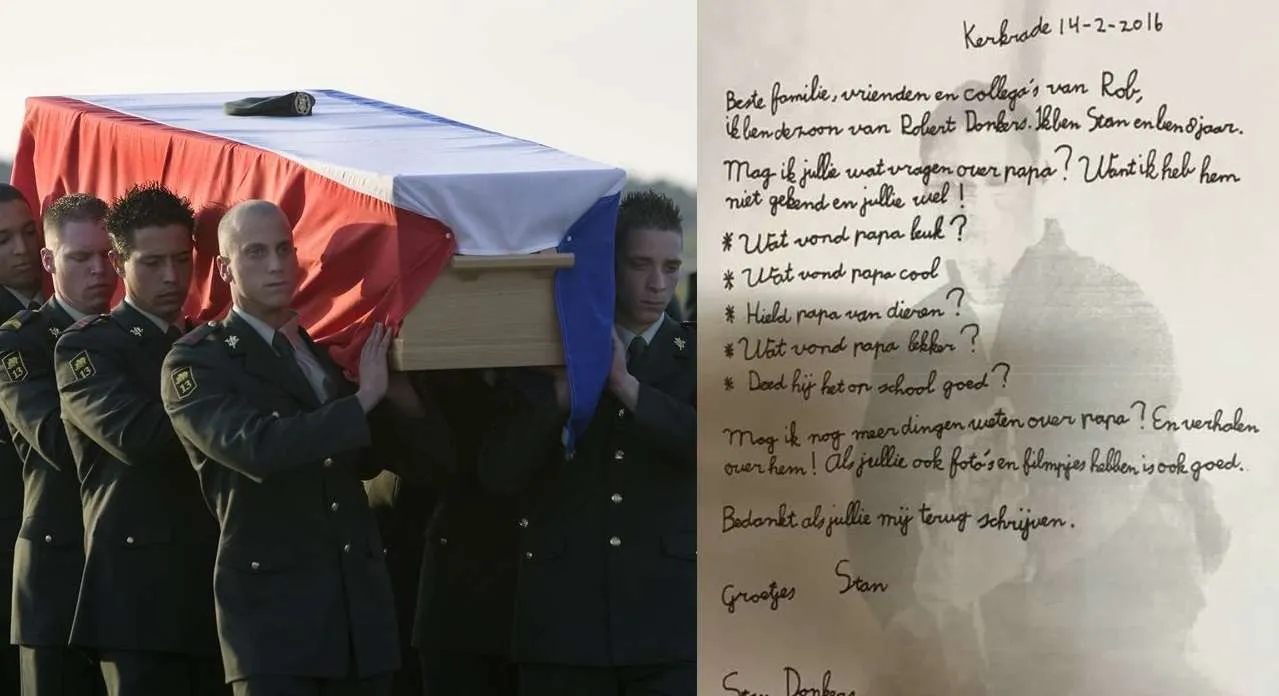 13
13
13
Kerkrade 14-2-2016
Beste familie, vrienden en collega's van Rob,
ik ben de zoon van Robert Donkers. Ik ben Stan en ben 8 jaar.
Mag ik jullie wat vragen over papa? Want ik heb hem
niet gekend en jullie wel!
* Wat vond papa leuk?
* Wat vond papa cool
* Hield papa van dieren?
* Wat vond papa lekker?
* Deed hij het op school goed?
Mag ik nog meer dingen weten over papa? En verhalen
over hem! Als jullie ook foto's en filmpjes hebben is ook goed.
Bedankt als jullie mij terug schrijven.
Groetjes Stan
Stan Donkers